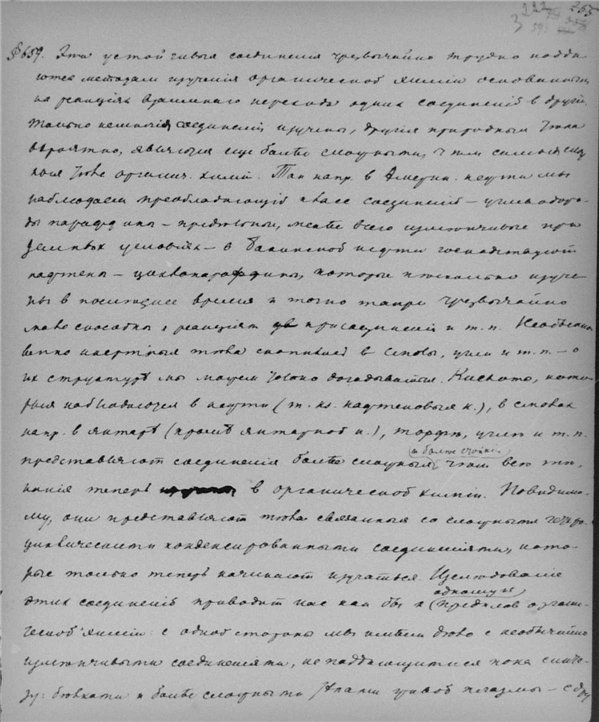 222 255
3 593
§ 659. Эти устойчивыя соединения чрезвычайно трудно подда
ются методам изучения органической химии основанным
на реакцiях взаимнаго перехода одних соединенiй в другiя
только немногiя соединенiя изучены, другiя природныя тела
вероятно, являются еще более сложными, чем самыя
тела органич. химiи. Так напр. в Америк. нефти мы
наблюдаем преобладающiй класс соединенiй – углеводоро
ды парафины – предельны, менее всего изменчивые при
земных условiях – в Бакинской нефти господствуют
нафтены – циклопарафины, которые несколько изуче
ны в последнее время и точно также чрезвычайно
мало способны к реакцiям присоединенiй и т.п. Необыкно
венно инертныя тела скопляет в смолы, угли и т.п. – о
их структуре мы можем только догадываться. Кислоты, кото
рыя наблюдаются в нефти (т. наз. нафтеновыя к.), в смолах
напр. в янтаре (кроме янтарной к.), торфе, углях и т.п.
представляют соединенiя более сложныя чем все те,
какiя теперь в органической химiи. Повидимо
му, они представляют тела связанныя со сложными гетеро
циклическими конденсированными соединенiями, кото
рые только теперь начинают изучаться. Изследованiе
этих соединенiй приводит нас как бы к пределов органи
ческой химiи: с одной стороны мы имеем дело с необычайно
изменчивыми соединенiями, не поддающимися пока синте
зу: белками и более сложными телами живой плазмы – с дру